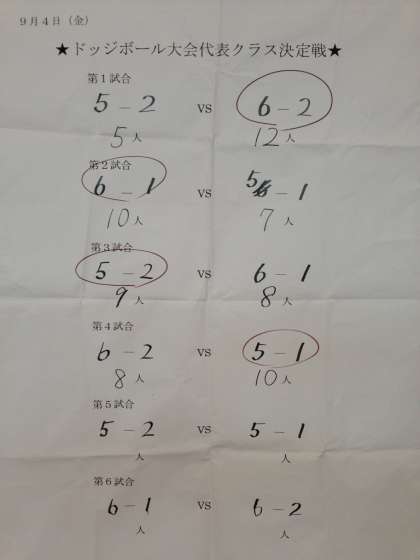 9月4日（金）
★ドッジボール大会代表クラス決定戦★
第1試合
5－2 vs 6－2
5人 12人
第2試合
6－1 vs 5－1
10人 7人
第3試合
5－2 vs 6－1
9人 8人
第4試合
6－2 vs 5－1
8人 10人
第5試合
5－2 vs 5－1
人 人
第6試合
6－1 vs 6－2
人 人